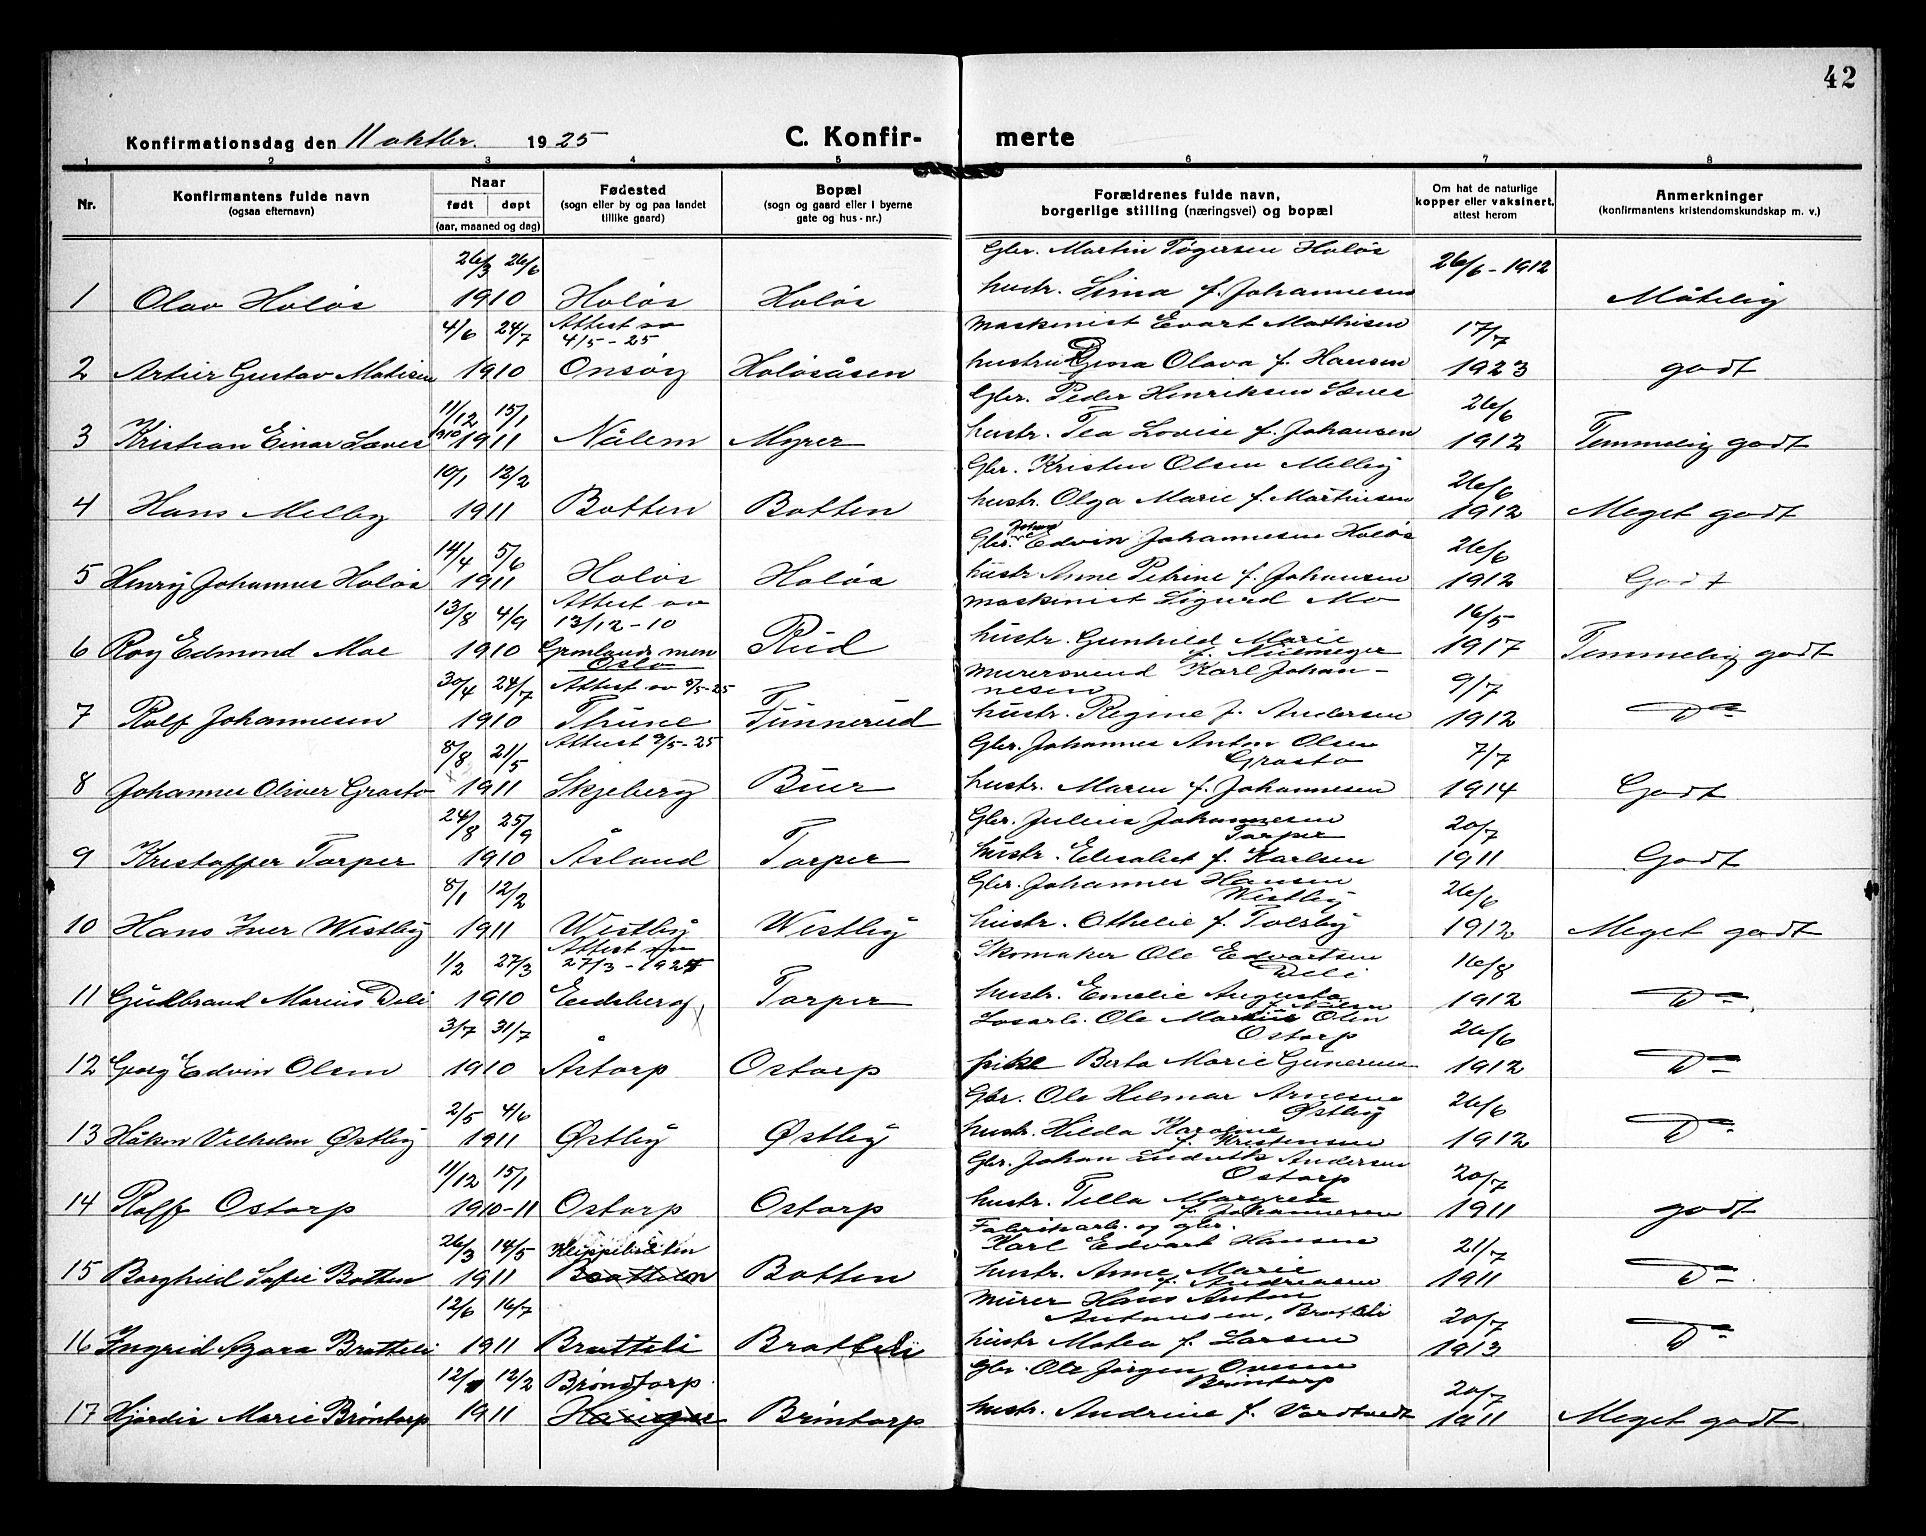 42
Konfirmationsdag den 11 oktbr. 1925
C. Konfir-merte
1 2 3 4 5 6 7 8
Nr.
Konfirmantens fulde navn
(ogsaa efternavn)
Naar
født døpt
(aar, maaned og dag)
Fødested
(sogn eller by og paa landet
tillike gaard)
Bopæl
(sogn og gaard eller i byerne
gate og hus-nr.)
Forældrenes fulde navn,
borgerlige stilling (næringsvei) og bopæl
Om hat de naturlige
kopper eller vaksinert,
attest herom
Anmerkninger
(konfirmantens kristendomskundskap m. v.)
26/3 26/6 Gbr. Martin Tøgersen Holøs 26/6-1912
1 Olav Holøs 1910 Holøs Holøs hustr. Lina f. Johannesen Måtelig
4/6 24/7 Attest av 4/5-25 maskinist Evart Mathisen 17/7
2 Artur Gustav Matisen 1910 Onsøy Holøsåsen hustru Gina Olava f. Hansen 1923 godt
11/12 15/1 Gbr. Peder Henriksen 26/6
3 Kristian Einar 1910 1911 Nålem Myrer hustr. Tea Lovise f. Johansen 1912 Temmelig godt
10/1 12/2 Gbr. Kristen Olsen Melby 26/6
4 Hans Melby 1911 Botten Botten hustr. Olga Marie f. Martinsen 1912 Meget godt
14/4 5/6 Gbr. Edvin Johannesen Holøs 26/6
5 Henry Johannes Holøs 1911 Holøs Holøs hustr Anne Petrine f. Johansen 1912 Godt
13/8 4/9 Attest av 13/12-10 maskinist Sigurd Mo 16/5
6 Roy Edmond Moe 1910 Oslo Rud hustr. Gunhild Marie 1917 Temmelig godt
30/4 24/7 Attest av 8/5-25 murersvend Karl Johan-
nesen 9/7
7 Rolf Johannesen 1910 Thune Tunnerud hustr. Regine f. Andersen 1912 Do
8/8 21/5 Attest 9/5-25 Gbr. Johannes Anton Olsen Grasto 7/7
8 Johannes Oliver Grasto 1911 Skjeberg Buer hustr. Maren f. Johannesen 1914 Godt
24/8 25/9 Gbr. Julius Johannesen Torper 20/7
9 Kristoffer Torper 1910 Åsland Torper hustr. Elisabet f. Karlsen 1911 Godt
8/1 12/2 Gbr. Johannes Hansen Westby 26/6
10 Hans Iver Westby 1911 Westby Westby hustr. Othelie f. Tolsby 1912 Meget godt
1/2 27/3 Attest av 27/3-1925 Skomaker Ole Edvartsen Deli 16/8
11 Gudbrand Marius Deli 1910 Eidsberg Torper hustr. Emelie Augusta f. Nilsen 1912 Do
3/7 31/7 Losarb. Ole Marius Olsen Ostorp 26/6
12 Georg Edvin Olsen 1910 Åstorp Ostorp pike Berta Marie Gunersen 1912 Do
2/5 4/6 Gbr. Ole Helmar Arnesen Østby 26/6
13 Håkon Vilhelm Østby 1911 Østby Østby hustr. Hilda Karoline f. Kristensen 1912 Do
11/12 15/1 Gbr. Johan Ludvik Andersen Ostorp 20/7
14 Rolf Ostorp 1910-11 Ostorp Ostorp hustr. Tilla Margrete f. Johannesen 1911 godt
26/3 14/5 Fabrikarb. og gbr.
Karl Edvart Hansen 21/7
15 Borghild Sofie Botten 1911 Botten hustr. Anne Marie f. Andreasen 1911 Do
12/6 16/7 Murer Hans Anton
Antonsen, Bratteli 20/7
16 Ingrid Azora Bratteli 1911 Bratteli Bratteli hustr Matea f. Larsen 1913 Do
12/1 12/2 Brøndtorp Gbr. Ole Jørgen Ovesen Brøntorp 20/7
17 Hjørdis Marie Brøntorp 1911 Brøntorp hustr. Andrine f. Vardtvedt 1911 Meget godt